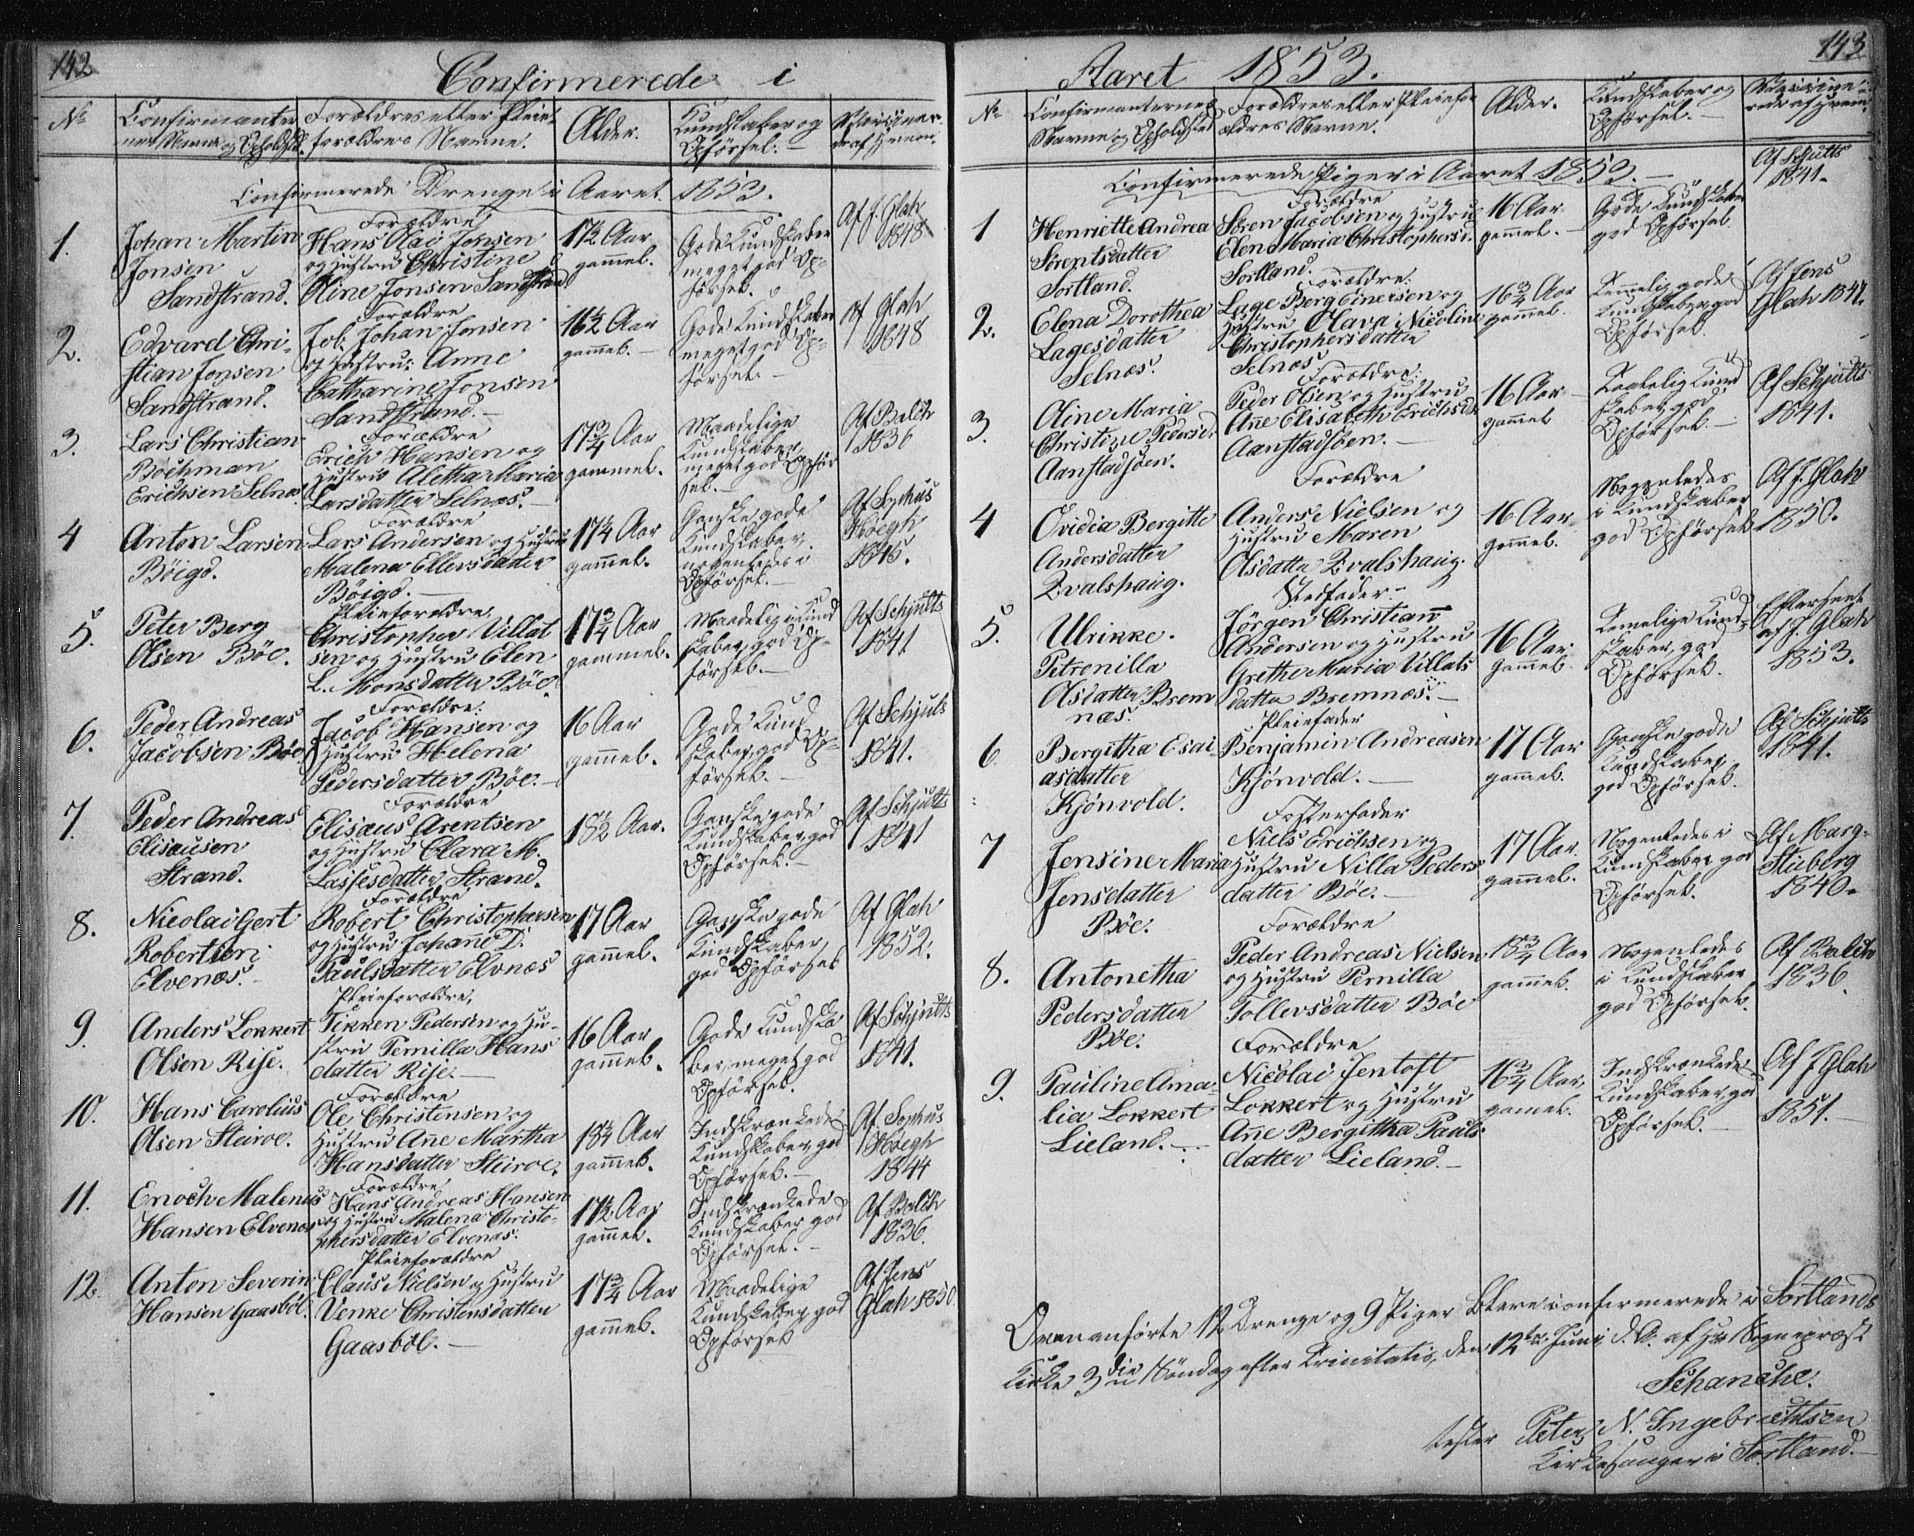 142
Confirmerede i
No
Confirmanter
nes Navne og Opholdst.
Forældres eller Pleie-
forældres Namne.
Alder.
Kundskaber og
Opførsel.
Vacciner
Confirmerede Drenge i Aaret 1853.
1.
Johan Martin
Jonsen
Sandstrand.
Forældre
Hans Aas Jonsen
og Hustru Christine
Oline Jonsen Sandstrand
17½ Aar
gammel.
Gode Kundskaber
meget god Op-
førsel.
Af J. Glah
1848
2.
Edvard Chri-
stian Jonsen
Sandstrand.
Forældre
Job. Johan Jonsen
og Hustru: Anne
Catharine Jonsen
Sandstrand.
16½ Aar
gammel.
Gode Kundskaber
meget god Op-
førsel.
Af Glah
1848
3.
Lars Christian
Bochman
Erichsen Selnæs
Forældre
Erich Hansen og
Hustru Aletha Maria
Larsdatter Selnæs.
17¾ Aar
gammel.
Maadelige
Kundskaber
meget god Opfør
sel.
Af Balch
1836
4
Anton Larsen
Böigd.
Forældre
Lars Andersen og Hustru
Malena Ellersdatter
Böigd.
17¼ Aar
gammel.
Ganske gode
Kundskaber
nogenledes i
Opførsel.
Af Sophus
Höegh
1845.
5.
Peter Berg
Olsen Böe.
Pleieforældre,
Christopher Villat
sen og Hustru Elen
L. Monsdatter Böe
17¾ Aar
gammel.
Maadelig i Kund
skaber, god Op-
førsel.
Af Schjults
1841
6.
Peder Andreas
Jacobsen Böe
Forældre:
Jacob Hansen og
Hustru Helena
Pedersdatter Böe.
16 Aar
gammel.
Gode Kund
skaber, god Op-
førsel.
Af Schjuls
1841.
7.
Peder Andreas
Elisæusen
Strand.
Forældre
Elisæus Arentsen
og Hustru Clara M.
Lassesdatter Strand.
18½ Aar.
Ganske gode
Kundskaber, god
Opførsel.
Af Schjults
1841
8.
Nicolai Gert
Robertsen
Elvenæs.
Forældre
Robert Christophersen
og Hustru Johanne D.
Paulsdatter Elvnæs
17 Aar
gammel.
Ganske gode
Kundskaber,
god Opførsel
Af Glah
1852.
9.
Anders Lokkert
Olsen Rise.
Pleieforældre,
Tikken Pedersen og Hu-
stru Pernilla Hans
datter Rise.
16 Aar
gammel.
Gode Kundska
ber, meget god
Opførsel.
Af Schjults
1841.
10.
Hans Carolius
Olsen Steiroe.
Forældre
Ole Christensen og
Hustru Ane Martha
Hansdatter Steiroe.
18¼ Aar
gammel.
Indskrænkede
Kundskaber, god
Opførsel.
Af Sophus
Höegh
1844
11.
Enoch Malenus
Hansen Elvenæs
Forældre
Hans Andreas Hansen
og Hustru Malena Christo-
phersdatter Elvenæs.
17½ Aar
gammel.
Indskrænkede
Kundskaber, god
Opførsel.
Af Balch
1836.
12.
Anton Severin
Hansen Gaasböl.
Pleieforældre
Claus Nielsen og Hustru
Venke Christensdatter
Gaasböl.
17¾ Aar
gammel.
Maadelige
Kundskaber, god
Opførsel
Af Jens
Glah 1850.
143
Aaret 1853.
No
Confirmanternes
Navne og Opholdsted
Forældres eller Pleiefor
ældres Navne.
Alder.
Kundskaber og
Opførsel.
Confirmerede Piger i Aaret 1853.
Af Schjults
1841.
1
Henriette Andrea
Sörentsdatter
Sortland.
Forældre
Sören Jacobsen og Hustru
Elen Maria Christophersd.
Sortland.
16 Aar
gammel.
Gode Kundskaber
god Opførsel
2.
Elena Dorothea
Lagesdatter
Selnæs.
Forældre:
Lage Berg Einersen og
Hustru Olava Nicoline
Christophersdatter
Selnæs
16¾ Aar
gammel.
Temmelig gode
Kundskaber, god
Opførsel.
Af Jens
Glah 1847.
3.
Oline Maria
Christine Pedersd.
Aanstadsjöen.
Forældre:
Peder Olsen og Hustru
Ane Elisabeth Erichsd.
Aanstadsjöen.
16 Aar
gammel
Taalelig Kund
skaber, god
Opførsel.
Af Schjults
1841.
4
Ovidia Bergitte
Andersdatter
Kvalshaug.
Forældre
Anders Nielsen og
Hustru Maren
Olsdatter Kvalshaug.
16 Aar
gammel.
Nogenledes
i Kundskaber
god Opførsel
Af J. Glah
1850.
5.
Ulrikke
Petronilla
Olsdatter Brem
næs.
Stedfader
Jörgen Christian
Andersen og Hustru
Grethe Maria Villats
datter Bremnæs.
16 Aar
gammel.
Temmelige Kund-
skaber, god
Opførsel.
af J. Glah
1853.
6.
Bergitha Esai
asdatter
Kjönvold.
Pleiefader
Benjamin Andreasen
Kjönvold.
17 Aar
gammel.
Ganske gode
Kundskaber
god Opførsel.
Af Schjults
1841.
7
Jensine Maria
Jensdatter
Böe.
Fosterfader
Niels Erichsen og
Hustru Nilla Peders
datter Böe.
17 Aar
gammel.
Nogenledes i
Kundskaber, god
Opførsel.
Af Marg-
Stuberg
1840.
8.
Antonetha
Pedersdatter
Böe.
Forældre
Peder Andreas Nielsen
og Hustru Pernilla
Tollevsdatter Böe
18¾ Aar
gammel.
Nogenledes
i Kundskaber
god Opførsel.
Af Balch
1836
9.
Pauline Ama-
lia Lokkert
Lieland.
Forældre
Nicolai Jentoft
Lokkert og Hustru
Ane Bergitha Pauls-
datter Lieland.
16¾ Aar,
gamel.
Indskrænkede
Kundskaber, god
Opførsel.
Af J Glah
1851.
Ovenanførte 12 Drenge og 9 Piger bleve confirmerede i Sortlands
Kirke 3die Søndag efter Trinitatis, den 12te Juni d. A. af Hr Sognepræst
Schanche.
tester Peter N. Ingebrichtsen
Kirkesanger i Sortland.